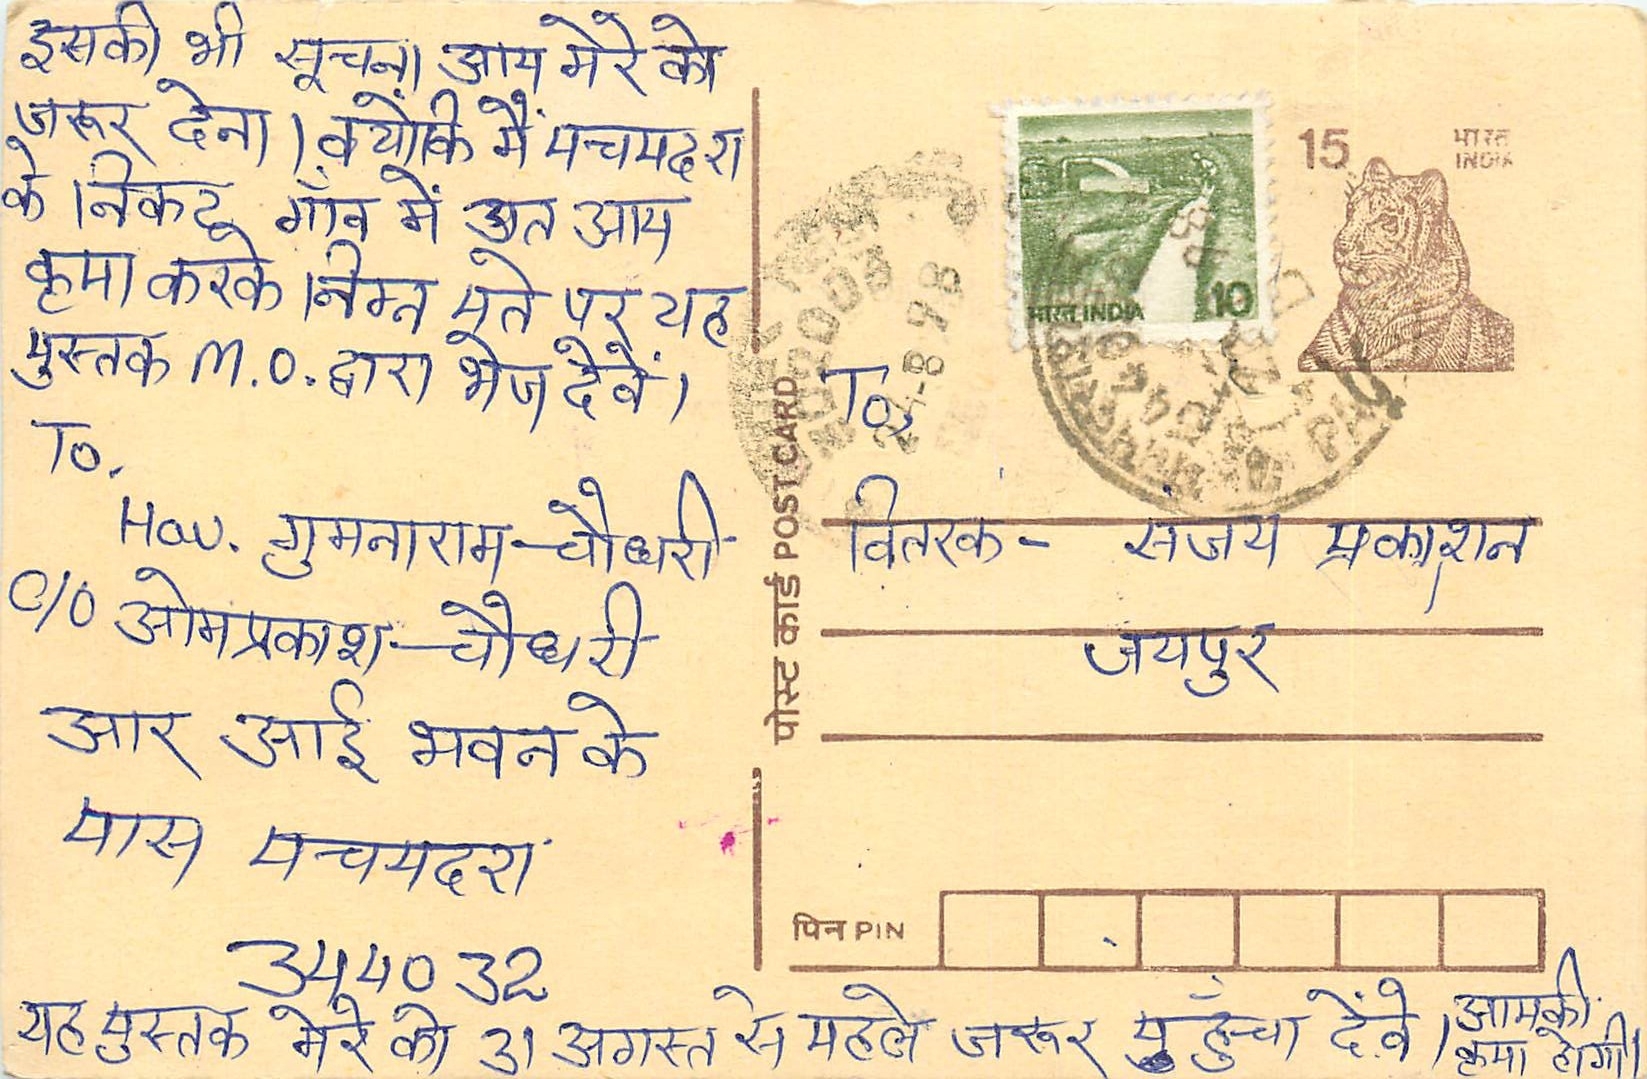 इसकी भी सूचना आप मेरे को
जरूर देना। क्योंकि मैं पचपदरा
के निकट गाँव में अत आप
कृपा करके निम्न पते पर यह
पुस्तक M.O. द्वारा भेज देवें।
To.
गुमनाराम-चौधरी
C/O ओमप्रकाश-चौधरी
आर आई भवन के
पास पचपदरा
344032
यह पुस्तक मेरे को 31 अगस्त से पहले जरूर पहुँचा देंवे। आपकी
कृपा होगी।
15
भारत
INDIA
भारत INDIA
10
302003
To,
वितरक - संजय प्रकाशन
जयपुर
पोस्ट कार्ड POST CARD
पिन PIN